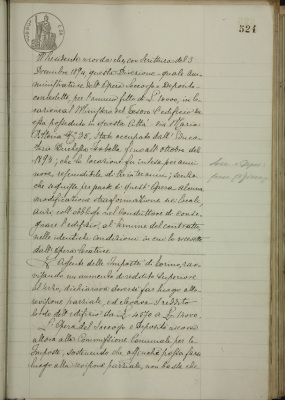 524
Il Presidente ricorda che, con Scrittura del 3
Dicembre 1894, questa Direzione, quale Am-
ministratrice dell'Opera Soccorso e Deposito
concedette, per l'annuo fitto di L. in lo-
cazione al Ministero del Tesoro l'edificio de
essa posseduto in questa Città via Maria
Vittoria N. 35, stato occupato dall'
fino all'Ottobre del
1894; che la locazione fu intesa per anni
nove, rescindibile di tre in tre anni; senza
che occorresse per parte di quest'Opera alcuna
modificazione o trasformazione nel locale,
anzi coll'obbligo nel conduttore di conse-
gnare l'edificio, al termine del contratto,
nelle identiche condizioni in cui lo riceveva
dall'Opera locatrice.
L'Agente delle Imposte di Torino, rav-
visando un aumento di reddito superiore
al terzo, dichiarava doversi far luogo alla
revisione parziale, ed elevava il reddito
lordo dell'edificio da L. 4570 a L.
L'Opera del Soccorso e Deposito ricorse
allora alla Commissione Comunale per le
Imposte, sostenendo che affinchè possa farsi
luogo alla revisione parziale, non basta che